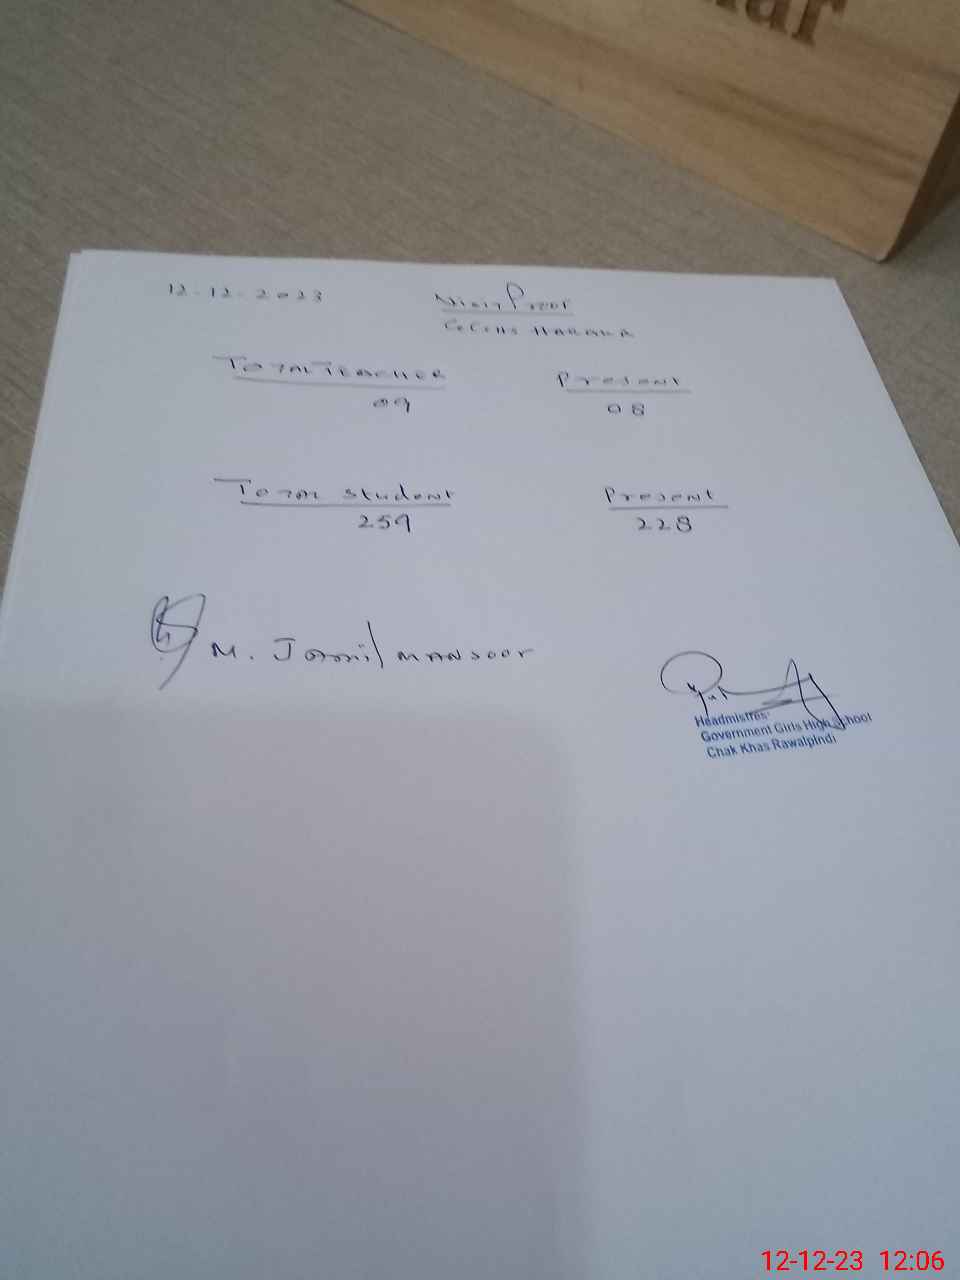 ar
12-12-2023
Visit Proof
GGHS HARAKA
Total Teacher
Present
09
08
Total Student
Present
259
228
M. Jamil Mansoor
Headmistres:
Government Girls High School
Chak Khas Rawalpindi
12-12-23 12:06